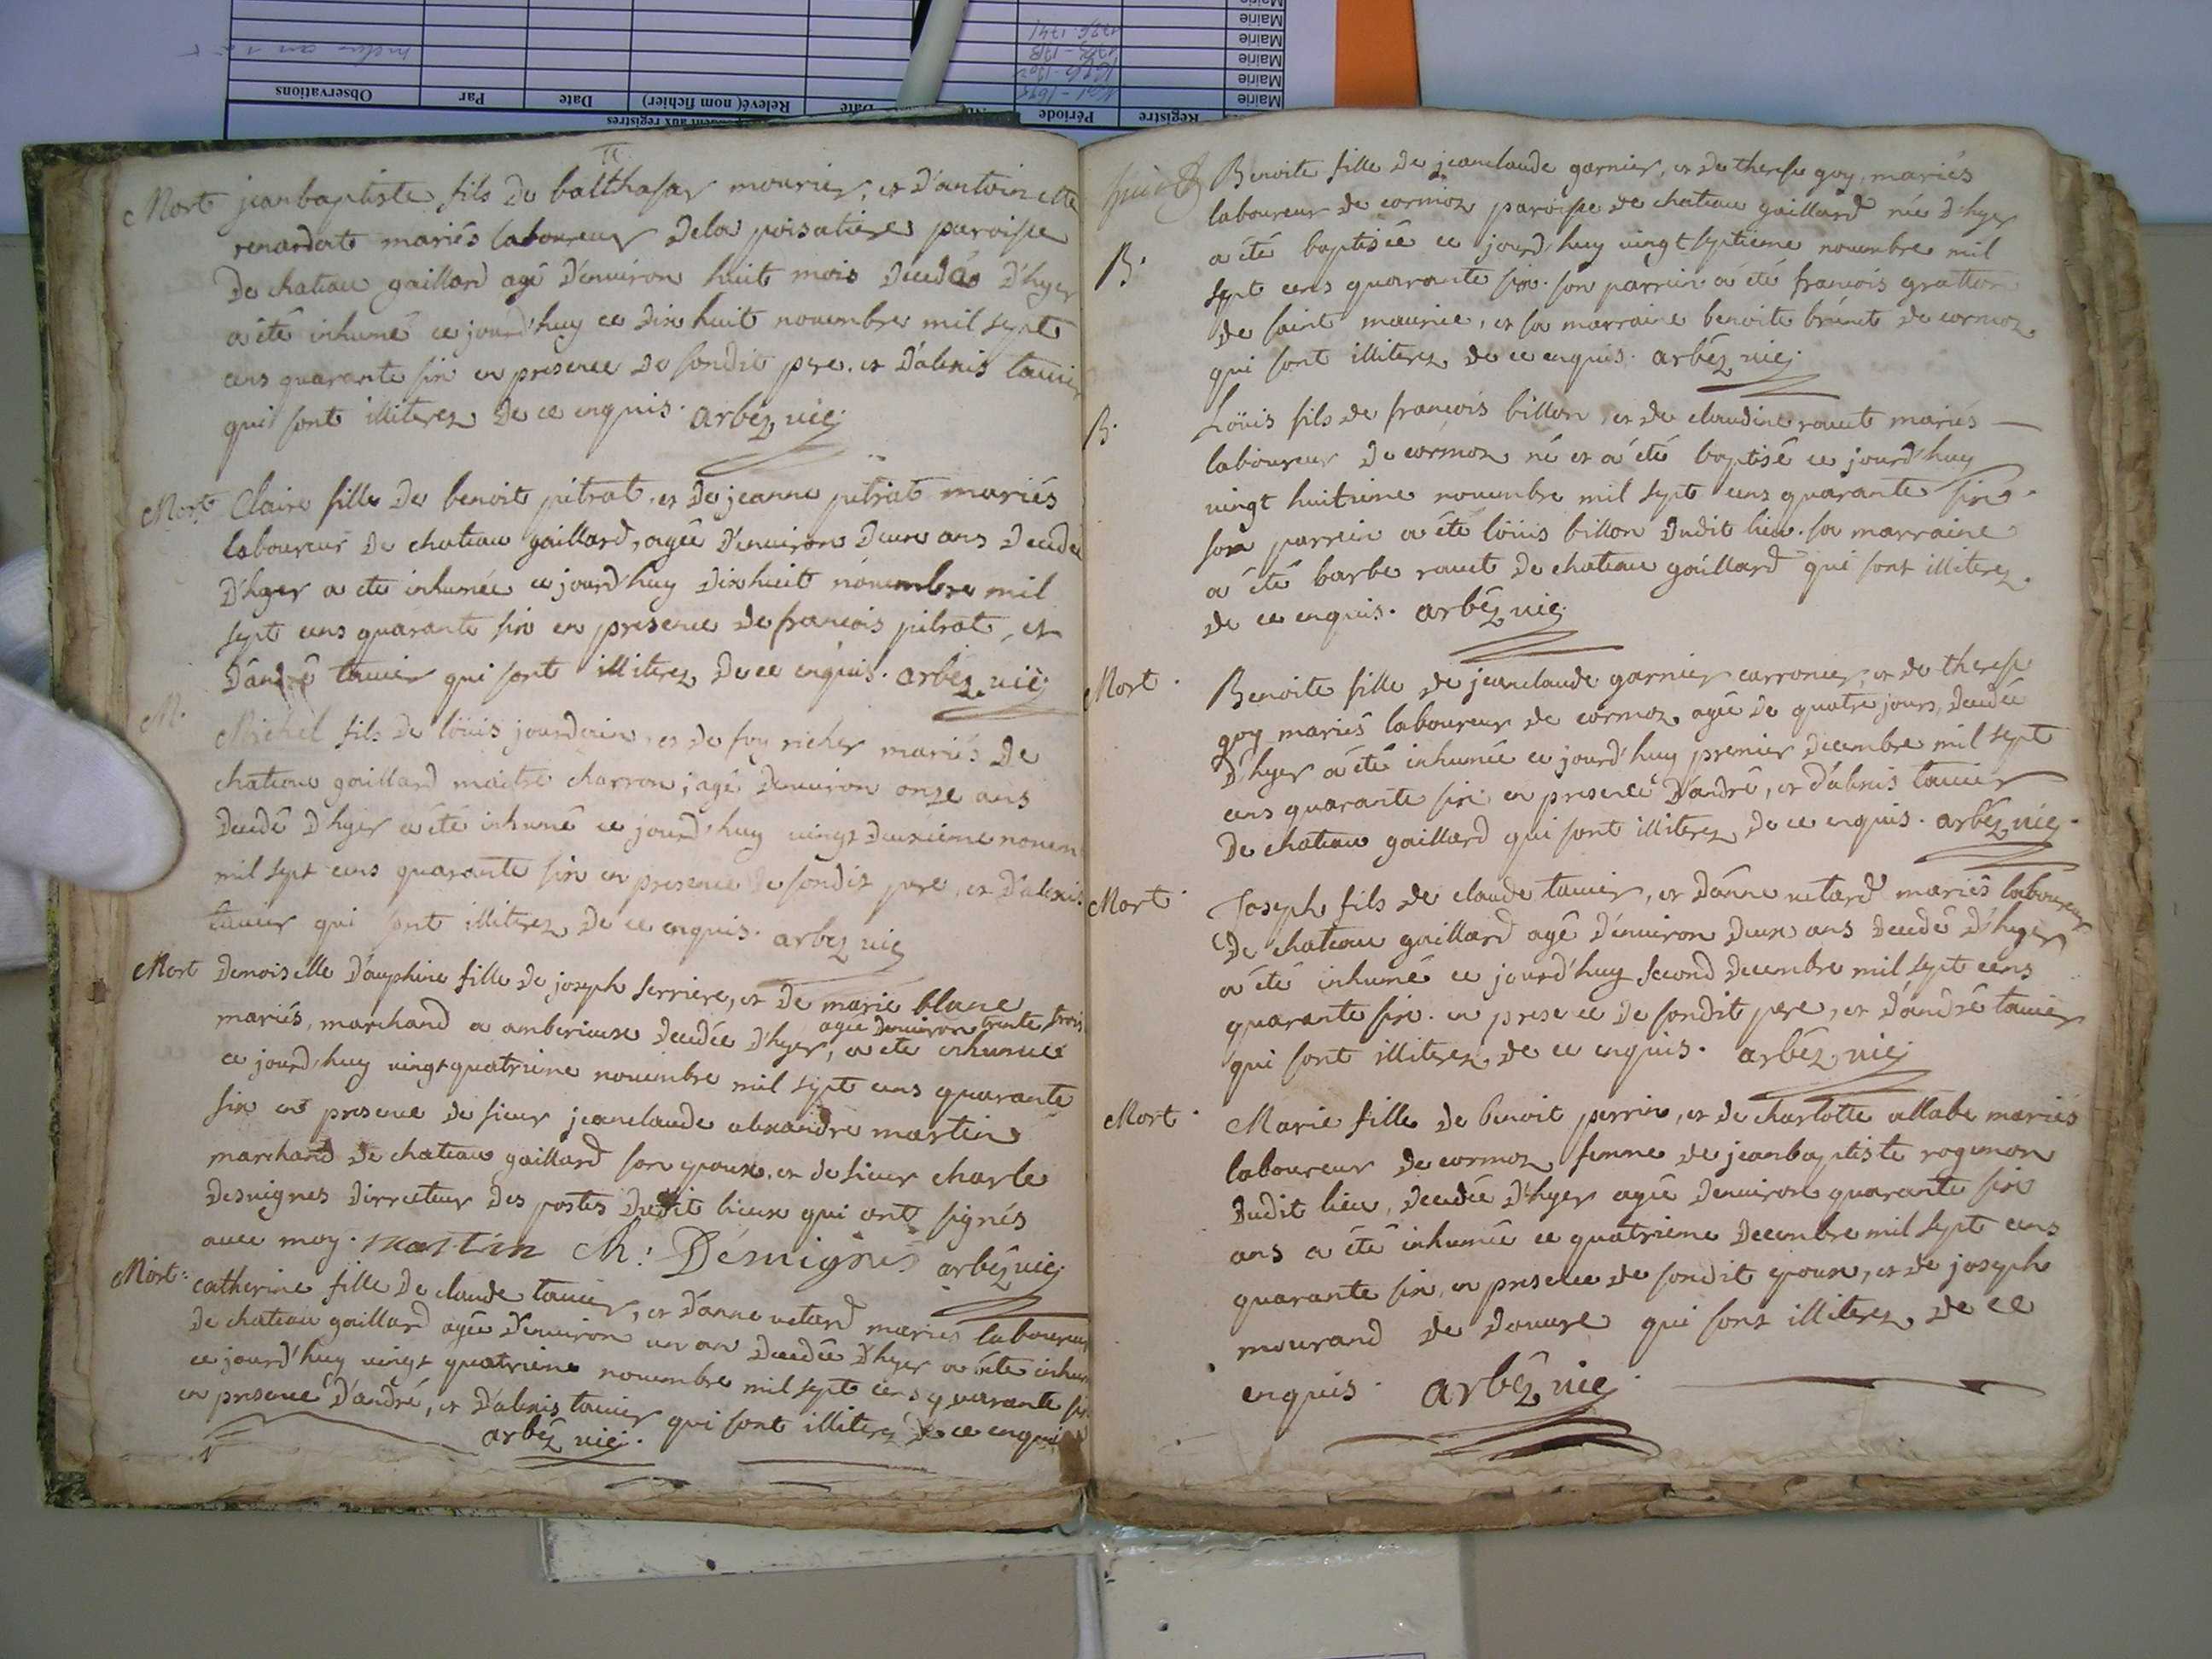 Mairie
Mairie
Mairie
Mairie
Mairie
1726-1741
1703-1713
1691-1695
Observations
Par
Date
Relevé( nom fichier)
Date
Période
Registre
aux registres
Mort jeanbaptiste fils de balthasar mourier, et d'antoinette
renardat mariés laboureur de la poisatiere paroisse
de chateau gaillard agé d'environ huit mois decedés d'hyer
a été inhumé ce jourd'huy ce dix huit nouembre mil sept
cens quarante six en presence de sondit pere. et d'alexis tauier
qui sont illiterez de ce enquis. arbéz vic;
Mort Claire fille de benoit pitrat, et de jeanne pitrat mariés
laboureur de chateau gaillard, agée d'enuiron deux ans decedée
d'hyer a été inhumée ce jourd'huy dixhuit nouembre mil
sept cens quarante six en presence de francois pitrat, et
d'andré tauier qui sont illiterez de ce enquis. arbéz vic;
M. Michel fils de löuis jourdain, et de foy richer mariés de
chateau gaillard maitre charron; agé d'enuiron onze ans
decedé d'hyer a été inhumé ce jourd'huy vingt deuxieme nouem
mil sept cens quarante six en presence de sondit pere, et d'alexis
tauier qui sont illiterez de ce enquis. arbéz vic;
Mort Demoiselle Dauphine fille de joseph serriere, et de marie blanc
agée denuiron trente trois
mariés, marchand a amberieux decedée d'hyer, a été inhumée
ce jourd'huy vingt quatrieme nouembre mil sept cens quarante
six en presence de sieur jeanclaude alexandre martin
marchand de chateau gaillard son epoux, et de sieur charle
desuignes dirrecteur des postes dudit lieux qui ont signés
auec moy. martin Ch: Désuignes arbéz vic;
Mort: catherine fille de claude tauier, et d'anne netard mariés laboureur
de chateau gaillard agée d'enuiron un an decedée d'hyer a été inhum
ce jourd'huy vingt quatrieme nouembre mil sept cens quarante six
en presence d'andré, et d'alexis tauier qui sont illiterez de ce enquis
arbéz vic;
Benoite fille de jeanclaude garnier, et de therese goy, mariés
laboureur de cormoz paroisse de chateau gaillard née d'hyer
B. a été baptisée ce jourd'huy vingt septieme nouembre mil
sept cens quarante six. son parrein a été francois gratton
de saint maurice, et sa marraine benoite brunet de cormoz
qui sont illiterez de ce enquis. arbéz vic;
B. Löuis fils de francois billon, et de claudine rauet mariés
laboureur de cormoz né et a été baptisé ce jourd'huy
vingt huitieme nouembre mil sept cens quarante six.
son parrein a été löuis billon dudit lieu. sa marraine
a été barbe rauet de chateau gaillard qui sont illiterez
de ce enquis. arbéz vic;
Mort. Benoite fille de jeanclaude garnier carronier, et de therese
goy mariés laboureur de cormoz agée de quatre jours, decedée
d'hyer a été inhumée ce jourd'huy premier decembre mil sept
cens quarante six en presence d'andré, et d'alexis tauier
de chateau gaillard qui sont illiterez de ce enquis. arbéz vic;
Mort. Joseph fils de claude tauier, et d'anne netard mariés laboureur
de chateau gaillard agé d'enuiron deux ans decedé d'hyer
a été inhumé ce jourd'huy second decembre mil sept cens
quarante six. en presence de sondit pere, et d'andré tauier
qui sont illiterez de ce enquis. arbéz vic;
Mort. Marie fille de benoit perrin, et de charlotte allabe mariés
laboureur de cormoz femme de jeanbaptiste rogemon
dudit lieu, decedée d'hyer agée denuiron quarante six
ans a été inhumée ce quatrieme decembre mil sept cens
quarante six, en presence de sondit epoux, et de joseph
mourand de douure qui sont illiterez de ce
enquis. arbéz vic;